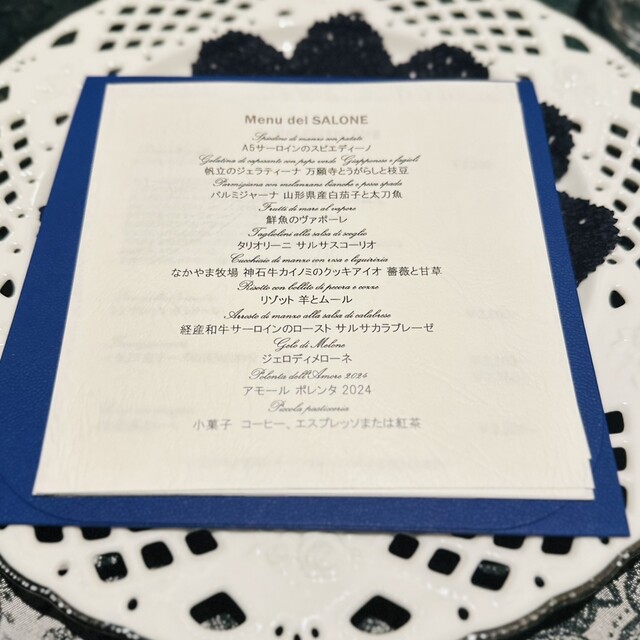 Menu del SALONE
Spiedino di manzo con patate
A5サーロインのスピエディーノ
Gelatina di capesante con pepe verde Giapponese e fagioli
帆立のジェラティーナ 万願寺とうがらしと枝豆
Parmigiana con melanzana bianche e pesce spada
パルミジャーナ 山形県産白茄子と太刀魚
Frutti di mare al vapore
鮮魚のヴァポーレ
Tagliolini alla salsa di scoglio
タリオリーニ サルサスコーリオ
Cucchiaio di manzo con rosa e liquirizia
なかやま牧場 神石牛カイノミのクッキアイオ 薔薇と甘草
Risotto con bollito di pecora e cozze
リゾット 羊とムール
Arrosto di manzo alla salsa di calabrese
経産和牛サーロインのロースト サルサカラブレーゼ
Gelo di Melone
ジェロディメローネ
Polenta dell'Amore 2024
アモール ポレンタ 2024
Piccola pasticceria
小菓子 コーヒー、エスプレッソまたは紅茶